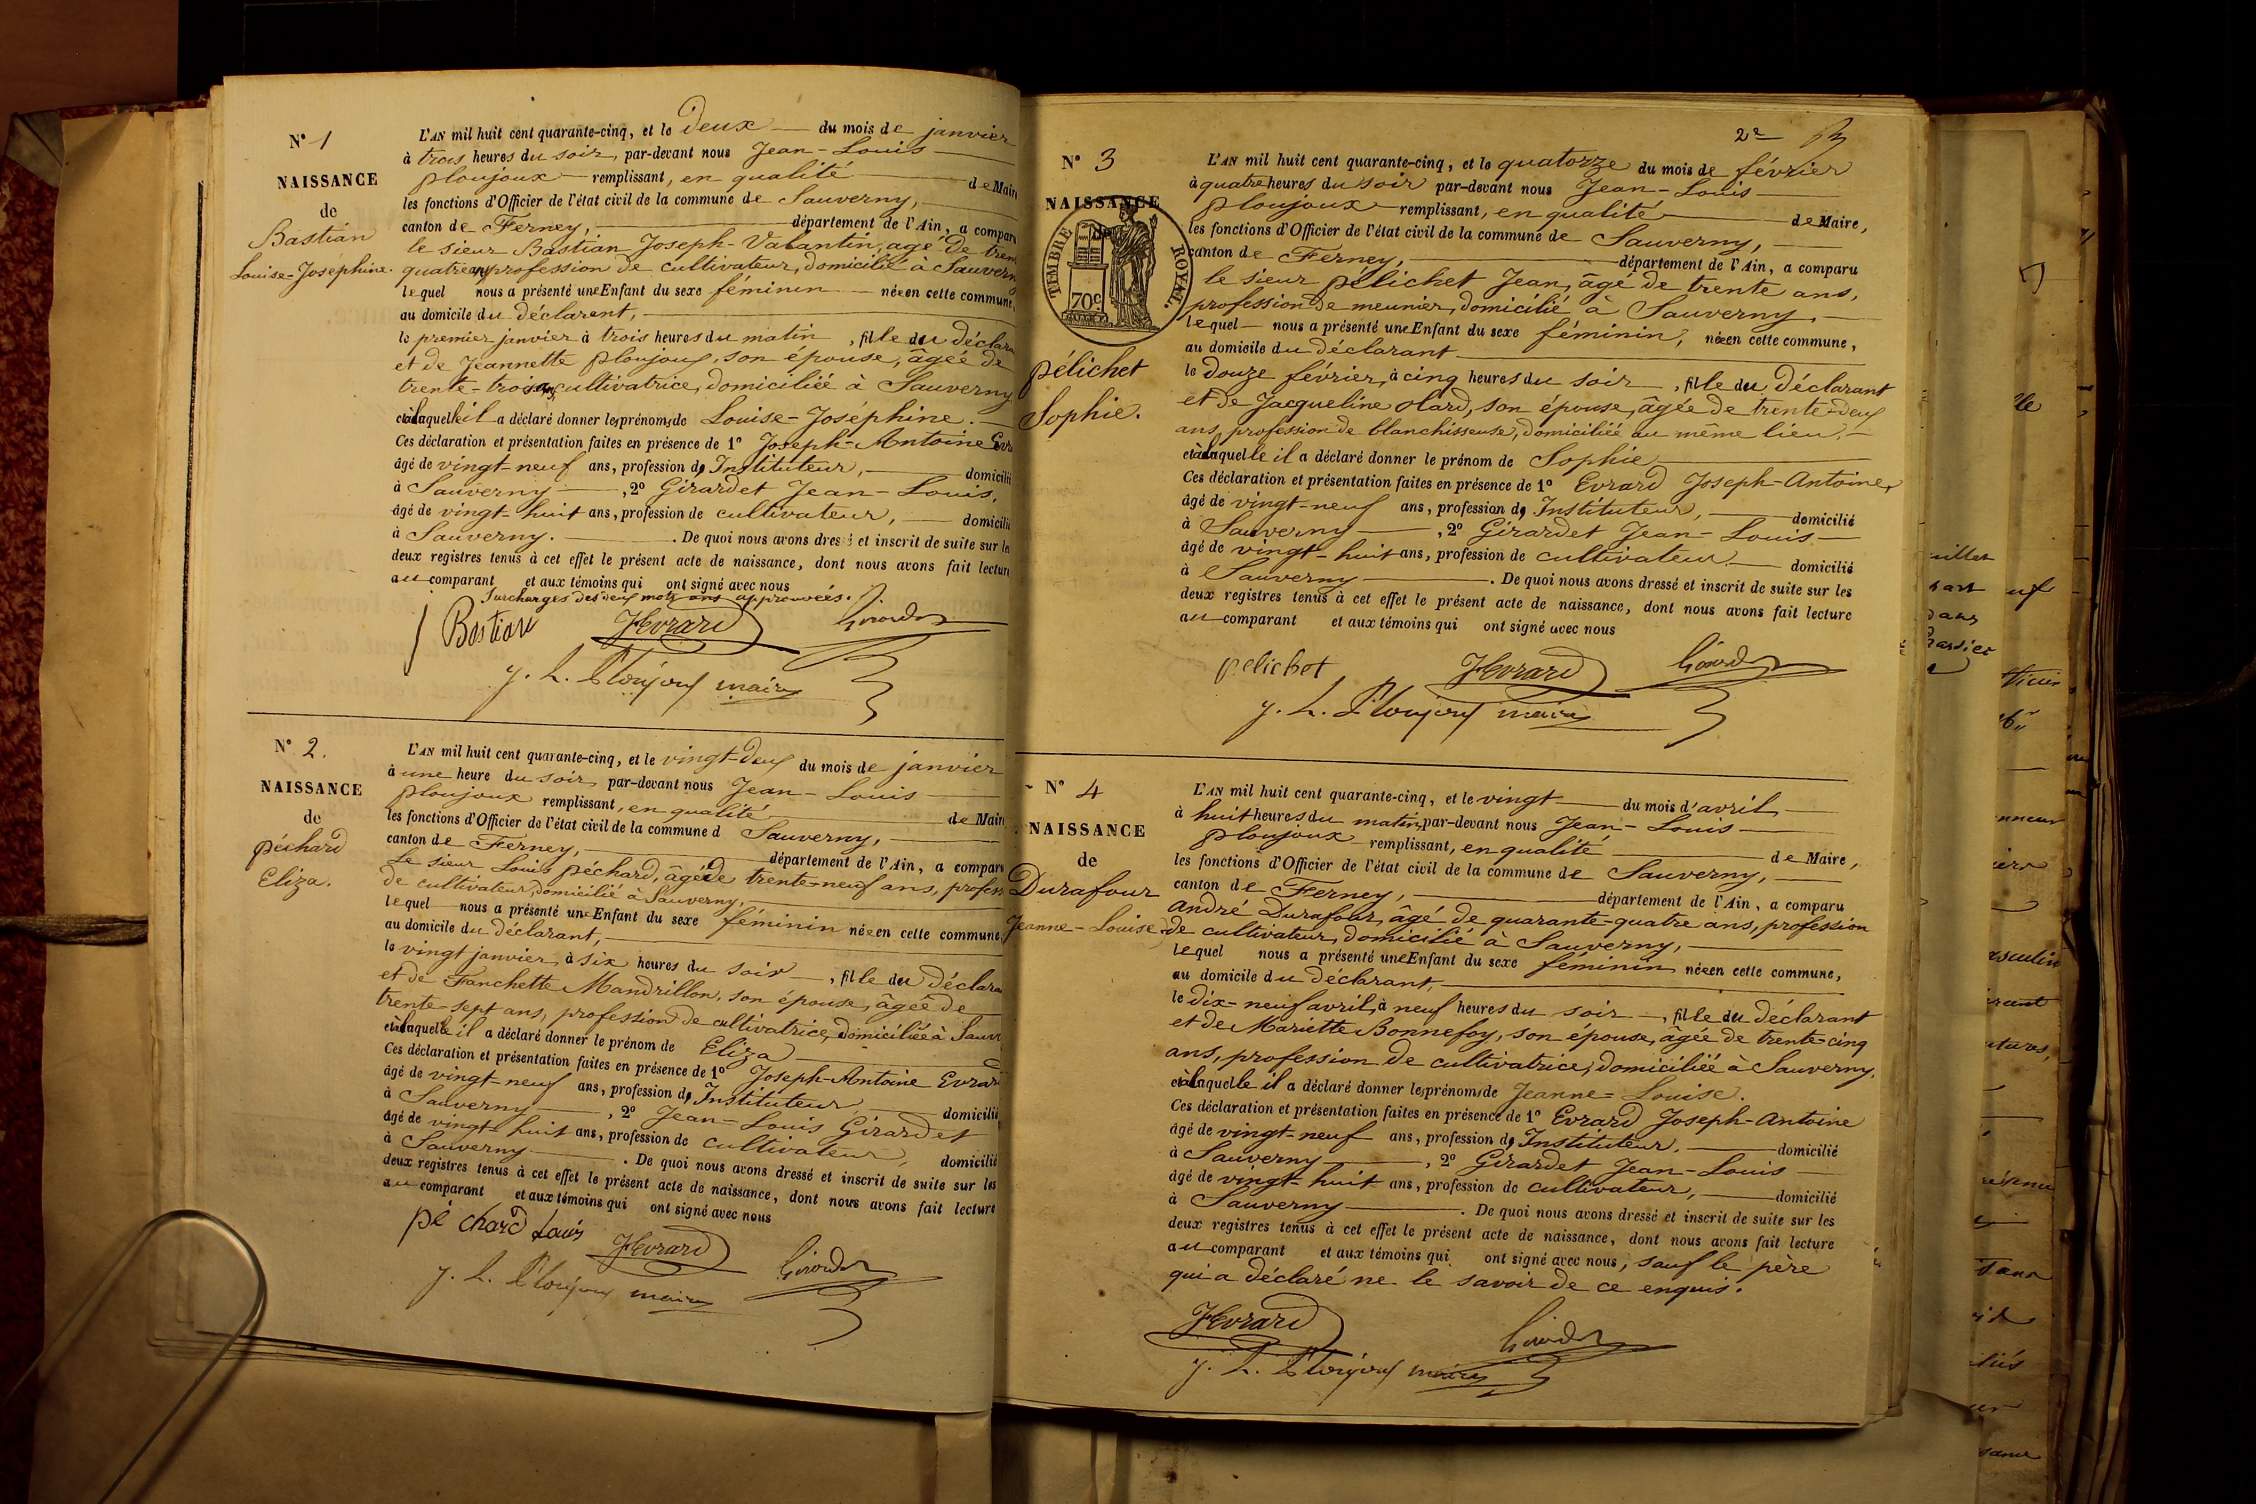 N° 1
NAISSANCE
de
Bastian
Louise-Joséphine.
L'AN mil huit cent quarante-cinq, et le deux du mois de janvier
à trois heures du soir, par-devant nous Jean-Louis
ploujoux remplissant, en qualité de Maire
les fonctions d'Officier de l'état civil de la commune de Sauverny,
canton de Ferney, département de l'Ain, a comparu
le sieur Bastian Joseph-Valantin, âgé de trente
quatre ans, profession de cultivateur, domicilié à Sauverny
lequel nous a présenté une Enfant du sexe féminin née en cette commune,
au domicile du déclarent,
le premier janvier à trois heures du matin, fille du déclara
et de Jeannette ploujoux, son épouse, âgée de
trente-trois ans, cultivatrice, domiciliée à Sauverny
et à laquelle il a déclaré donner les prénoms de Louise-Joséphine.
Ces déclaration et présentation faites en présence de 1° Joseph-Antoine Evr
âgé de vingt-neuf ans, profession d'Instituteur, domicilié
à Sauverny, 2° Girardet Jean-Louis,
âgé de vingt-huit ans, profession de cultivateur, domicilié
à Sauverny. De quoi nous avons dressé et inscrit de suite sur les
deux registres tenus à cet effet le présent acte de naissance, dont nous avons fait lecture
au comparant et aux témoins qui ont signé avec nous
Surcharges des deux mots ans approuvées.
Bastian JEvrard Girardet
J. L. Ploujoux maire
N° 2.
NAISSANCE
de
péchard
Eliza.
L'AN mil huit cent quarante-cinq, et le vingt-deux du mois de janvier
à une heure du soir par-devant nous Jean-Louis
ploujoux remplissant, en qualité de Maire
les fonctions d'Officier de l'état civil de la commune d Sauverny,
canton de Ferney, département de l'Ain, a comparu
Le sieur Louis péchard, âgé de trente-neuf ans, profess
de cultivateur, domicilié à Sauverny,
lequel nous a présenté une Enfant du sexe féminin née en cette commune,
au domicile du déclarant,
le vingt janvier, à six heures du soir, fille du déclara
et de Fanchette Mandrillon, son épouse, âgée de
trente-sept ans, profession de cultivatrice, domiciliée à Sauv
et à laquelle il a déclaré donner le prénom de Eliza
Ces déclaration et présentation faites en présence de 1° Joseph-Antoine Evrar
âgé de vingt-neuf ans, profession d'Instituteur, domicilié
à Sauverny, 2° Jean-Louis Girardet
âgé de vingt-huit ans, profession de cultivateur, domicilié
à Sauverny. De quoi nous avons dressé et inscrit de suite sur les
deux registres tenus à cet effet le présent acte de naissance, dont nous avons fait lecture
au comparant et aux témoins qui ont signé avec nous
péchard Louis JEvrard Girardet
J. L. Ploujoux maire
2e
N° 3
NAISSANCE
de
TIMBRE ROYAL.
70c
pélichet
Sophie.
L'AN mil huit cent quarante-cinq, et le quatorze du mois de février
à quatre heures du soir par-devant nous Jean-Louis
ploujoux remplissant, en qualité de Maire,
les fonctions d'Officier de l'état civil de la commune de Sauverny,
canton de Ferney, département de l'Ain, a comparu
le sieur pélichet Jean, âgé de trente ans,
profession de meunier, domicilié à Sauverny.
lequel nous a présenté une Enfant du sexe féminin, née en cette commune,
au domicile du déclarant
le douze février, à cinq heures du soir, fille du déclarant
et de Jacqueline Hard, son épouse, âgée de trente-deux
ans, profession de blanchisseuse, domiciliée au même lieu.
et à laquelle il a déclaré donner le prénom de Sophie
Ces déclaration et présentation faites en présence de 1° Evrard Joseph-Antoine,
âgé de vingt-neuf ans, profession d'Instituteur, domicilié
à Sauverny, 2° Girardet Jean-Louis
âgé de vingt-huit ans, profession de cultivateur domicilié
à Sauverny. De quoi nous avons dressé et inscrit de suite sur les
deux registres tenus à cet effet le présent acte de naissance, dont nous avons fait lecture
au comparant et aux témoins qui ont signé avec nous
pelichet JEvrard Girardet
J. L. Ploujoux maire
N° 4
NAISSANCE
de
Durafour
Jeanne-Louise
L'AN mil huit cent quarante-cinq, et le vingt du mois d'avril
à huit heures du matin, par-devant nous Jean-Louis
ploujoux remplissant, en qualité de Maire,
les fonctions d'Officier de l'état civil de la commune de Sauverny,
canton de Ferney, département de l'Ain, a comparu
André Durafour, âgé de quarante-quatre ans, profession
de cultivateur, domicilié à Sauverny,
lequel nous a présenté une Enfant du sexe féminin née en cette commune,
au domicile du déclarant,
le dix-neuf avril, à neuf heures du soir, fille du déclarant
et de Mariette Bonnefoy, son épouse, âgée de trente-cinq
ans, profession de cultivatrice, domiciliée à Sauverny,
et à laquelle il a déclaré donner les prénoms de Jeanne-Louise.
Ces déclaration et présentation faites en présence de 1° Evrard Joseph-Antoine
âgé de vingt-neuf ans, profession d'Instituteur, domicilié
à Sauverny, 2° Girardet Jean-Louis
âgé de vingt-huit ans, profession de cultivateur, domicilié
à Sauverny. De quoi nous avons dressé et inscrit de suite sur les
deux registres tenus à cet effet le présent acte de naissance, dont nous avons fait lecture
au comparant et aux témoins qui ont signé avec nous, sauf le père
qui a déclaré ne le savoir de ce enquis.
JEvrard Girardet
J. L. Ploujoux maire